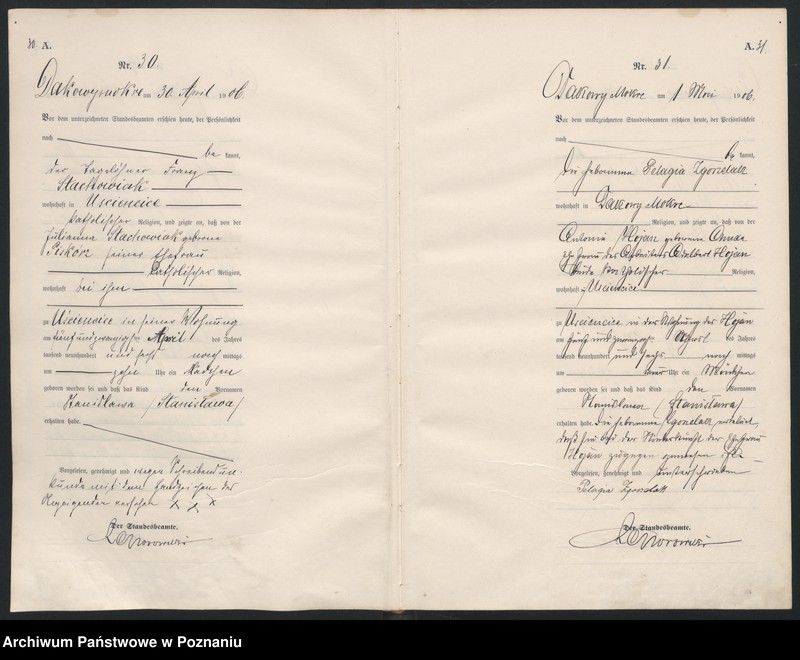 30. A.
Nr. 30.
Dakowymokre am 30 April 1906.
Vor dem unterzeichneten Standesbeamten erschien heute, der Persönlichkeit
nach
be kannt,
der Tagelöhner Franz
Stachowiak
wohnhaft in Uscience
katholischer Religion, und zeigte an, daß von der
Julianna Stachowiak geborene
Piskorz seiner Ehefrau
katholischer Religion,
wohnhaft bei ihm
zu Uscience in seiner Wohnung
am fünfundzwanzigsten April des Jahres
tausend neunhundert und sechs nach mittags
um zehn Uhr ein Mädchen
geboren worden sei und daß das Kind den Vornamen
Stanislawa (Stanisława)
erhalten habe.
Vorgelesen, genehmigt und wegen Schreibensun-
kunde mit dem Handzeichen des
Anzeigenden versehen x x x
Der Standesbeamte.
A. 31.
Nr. 31.
Dakowy Mokre am 1 Mai 1906.
Vor dem unterzeichneten Standesbeamten erschien heute, der Persönlichkeit
nach
be kannt,
die Hebamme Pelagia Zgorzelak
wohnhaft in Dakowy Mokre
Religion, und zeigte an, daß von der
Antonie Hojan geborenen
Ehefrau des Arbeiters Adalbert Hojan
beide katholischer Religion,
wohnhaft Uscience
zu Uscience in der Wohnung der Hojan
am fünf und zwanzig April des Jahres
tausend neunhundert und sechs nach mittags
um Uhr ein Mädchen
geboren worden sei und daß das Kind den Vornamen
Stanislawa (Stanisława)
erhalten habe. Die Hebamme Zgorzelak erklärt,
daß sie bei der Niederkunft der Ehefrau
Hojan zugegen gewesen ist.
Vorgelesen, genehmigt und unterschrieben
Pelagia Zgorzelak
Der Standesbeamte.
Archiwum Państwowe w Poznaniu